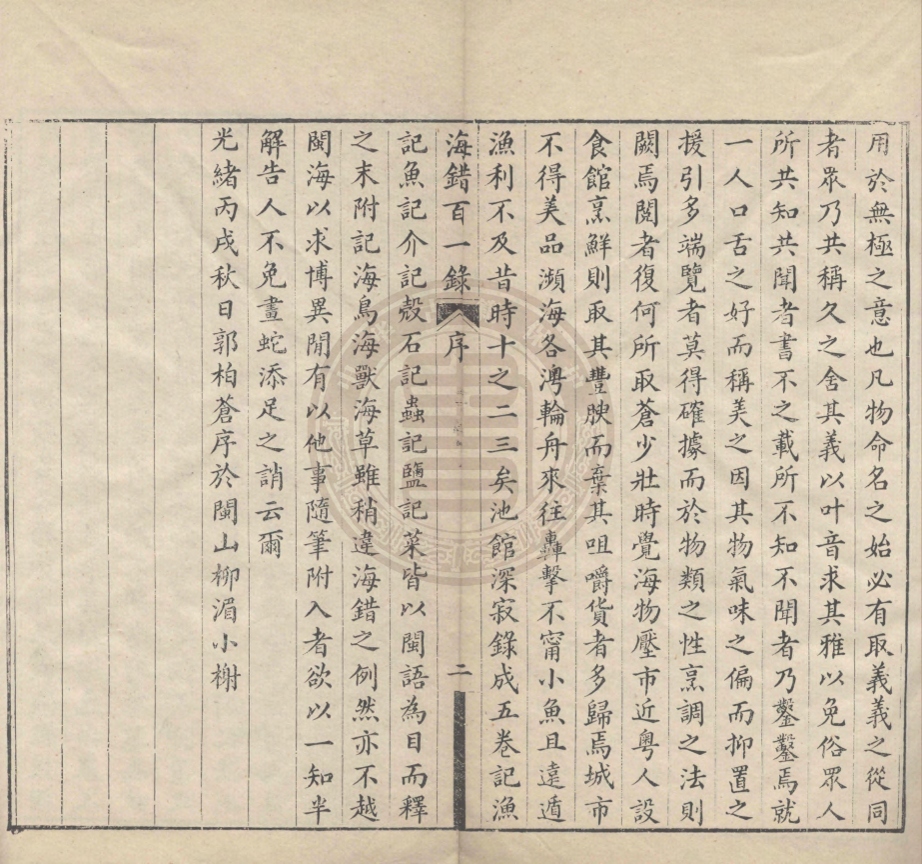 用於無極之意也凡物命名之始必有取義義之從同
者眾乃共稱久之舍其義以叶音求其雅以免俗眾人
所共知共聞者書不之載所不知不聞者乃鑿鑿焉就
一人口舌之好而稱美之因其物氣味之偏而抑置之
援引多端覽者莫得確據而於物類之性烹調之法則
闕焉閱者復何所取蒼少壯時覺海物壓市近粵人設
食館烹鮮則取其豐腴而棄其咀嚼貨者多歸焉城市
不得美品瀕海各澚輪舟來往轟擊不甯小魚且遠遁
漁利不及昔時十之二三矣池館深寂錄成五卷記漁
海錯百一錄 序 二
記魚記介記殼石記蟲記鹽記菜皆以閩語為目而釋
之末附記海鳥海獸海草雖稍違海錯之例然亦不越
閩海以求博異閒有以他事隨筆附入者欲以一知半
解告人不免畫蛇添足之誚云爾
光緒丙戌秋日郭柏蒼序於閩山柳湄小榭